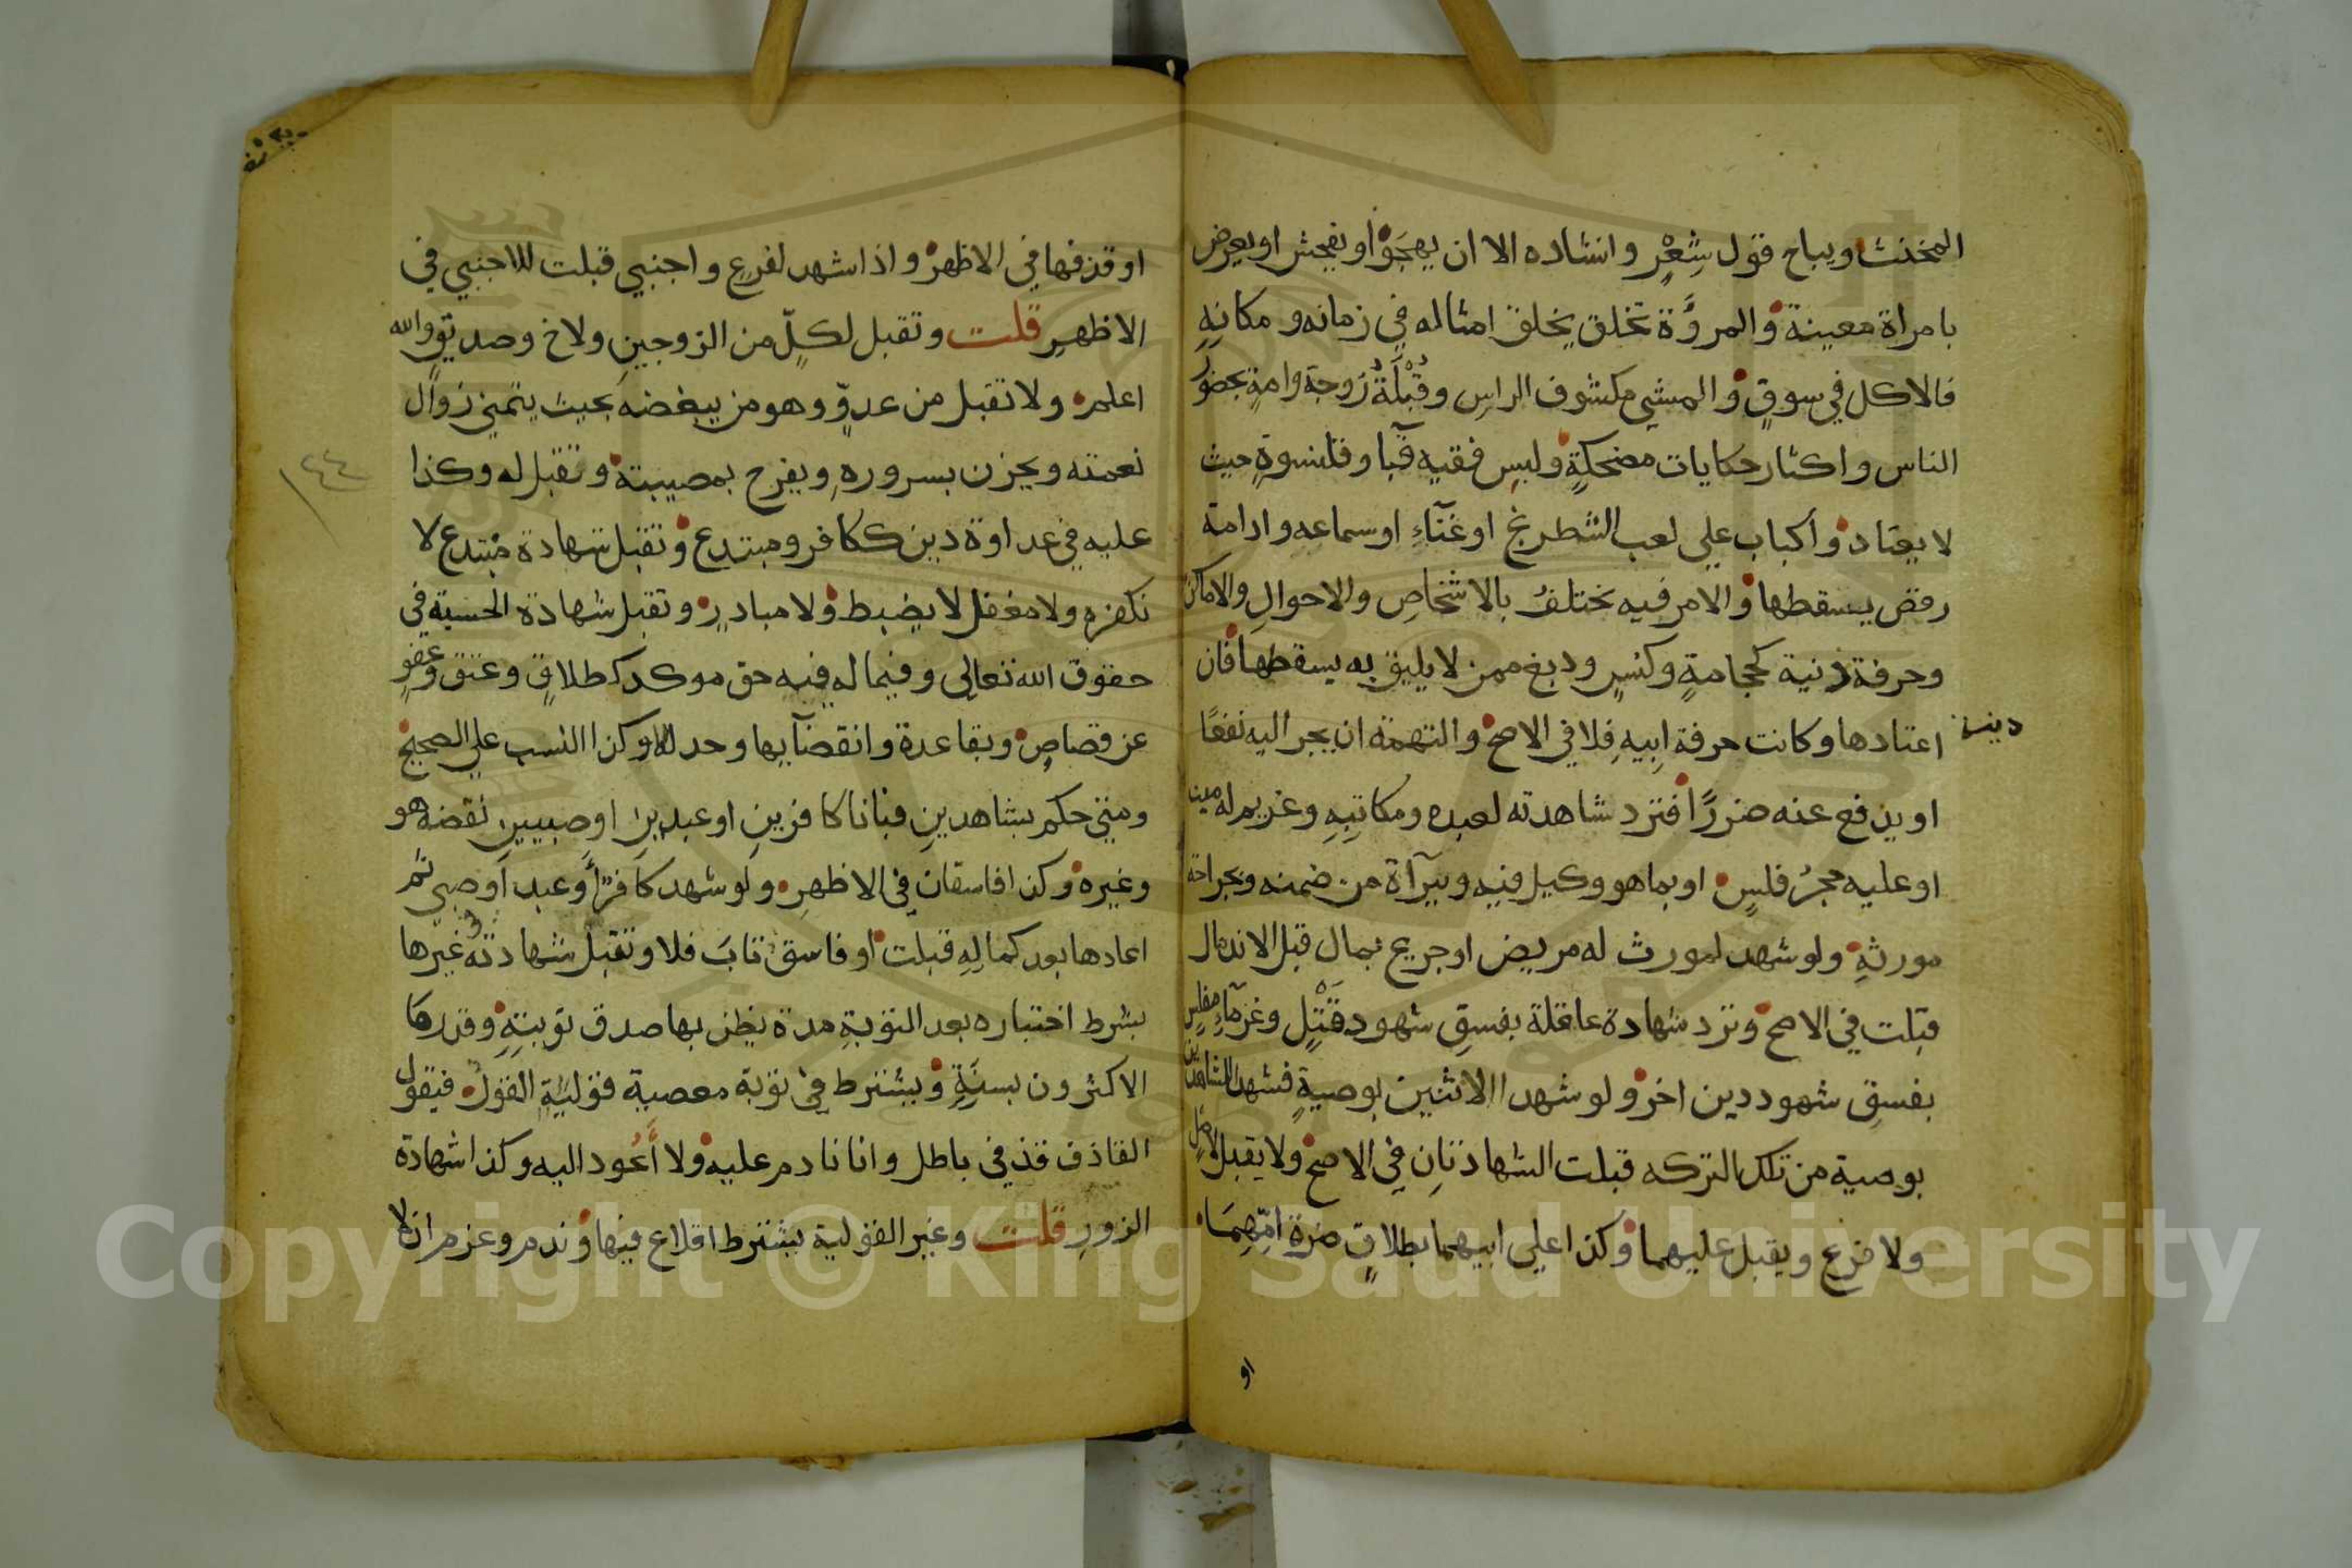 المخنث ويباح قول شِعْرٍ وانشاده الا ان يهجَوْا او يفحش او يعرض
بامراة معينة والمروَّة تخلق بخلق امثاله في زمانه ومكانِهِ
فالاكل في سوقٍ والمشي مكشوف الراسِ وقُبْلَةُ زوجة وامةٍ بحضور
الناس واكثار حكايات مضحكةٍ ولبس فقيه قبآ وقلنسوةٍ حيث
لا يعتاد واكباب علي لعب الشطرنج او غنآءِ او سماعه وادامة
رقص يسقطها والامر فيه يختلفُ بالاشخاصِ والاحوالِ والاماكن
وحرفة دنية كحجامةٍ وكنسٍ ودبغ ممن لا يليق به يسقطها فان
اعتادها وكانت حرفة ابيهِ فلا في الاصح والتهمة ان يجر اليه نفعًا
دنيئة
او يدفع عنه ضررًا فترد شاهدته لعبده ومكاتبِهِ وغريم له ميت
او عليه حجرُ فلسٍ او بما هو وكيل فيه وببرآة من ضمنه وبجراحة
مورثهِ ولو شهد لمورث له مريض او جريح بمال قبل الاندمال
قبلت في الاصح وترد شهادة عاقلة بفسقِ شهود قَتْلٍ وغرمآءِ مفلسٍ
بفسقِ شهود دين اخر ولو شهدا الاثنين بوصيةٍ فشهد الشاهدين
بوصية من تلك التركه قبلت الشهادتانِ في الاصح ولا يقبل لاصلٍ
ولا فرع ويقبل عليهما وكذا علي ابيهما بطلاقٍ ضرة امّهِمَا
او
او قذفها في الاظهر واذا شهد لفرع واجنبي قبلت للاجنبي في
الاظهرِ قلت وتقبل لكلّ من الزوجينِ ولاخ وصديق والله
اعلم ولا تقبل من عدوّ وهو من يبغضه بحيث يتمني زوال
نعمته ويحزن بسروره ويفرح بمصيبته وتقبل له وكذا
عليه في عداوة دين ككافر ومبتدع وتقبل شهادة مبتدع لا
نكفره ولا مغفل لا يضبط ولا مبادرٍ وتقبل شهادة الحسبة في
حقوق الله تعالي وفيما له فيه حق موكد كطلاقٍ وعتق وعفوٍ
عن قصاصٍ وبقاءعدة وانقضآيها وحد لله وكذا النسب علي الصحيح
ومتي حكم بشاهدينِ فبانا كافرينِ او عبدينِ او صبيينِ نقضه هو
وغيره وكذا فاسقان في الاظهرِ ولو شهد كافرٌ او عبد او صبي ثم
اعادها بعد كمالِهِ قبلت او فاسق تابَ فلا وتقبل شهادتُهُ غيرها
بشرط اختباره بعد التوبةِ مدة يظن بها صدق توبتِهِ وقدرها
الاكثرون بسنَةٍ ويشترط في توبة معصية قوليَّةٍ القولُ فيقول
القاذف قذفي باطل وانا نادم عليه ولا أَعُود اليه وكذا شهادة
الزورِ قلت وغير القولية يشترط اقلاع فيها وندم وعزم ان لا
١٤٤